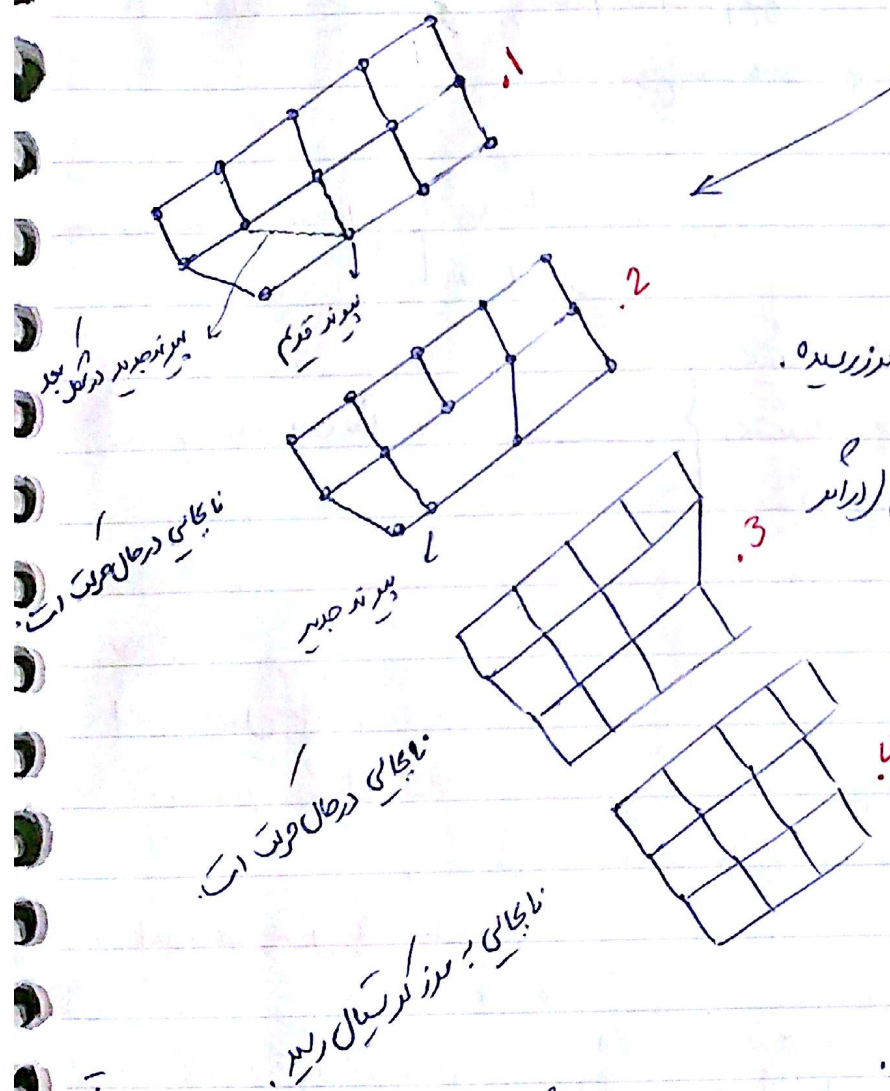 .1
پیوند قدیم
پیوند جدید در شکل بعد
.2
مرز رسیده.
نابجایی در حال حرکت است.
پیوند جدید
.3
نابجایی در حال حرکت است.
.4
نابجایی به مرز کریستال رسید.